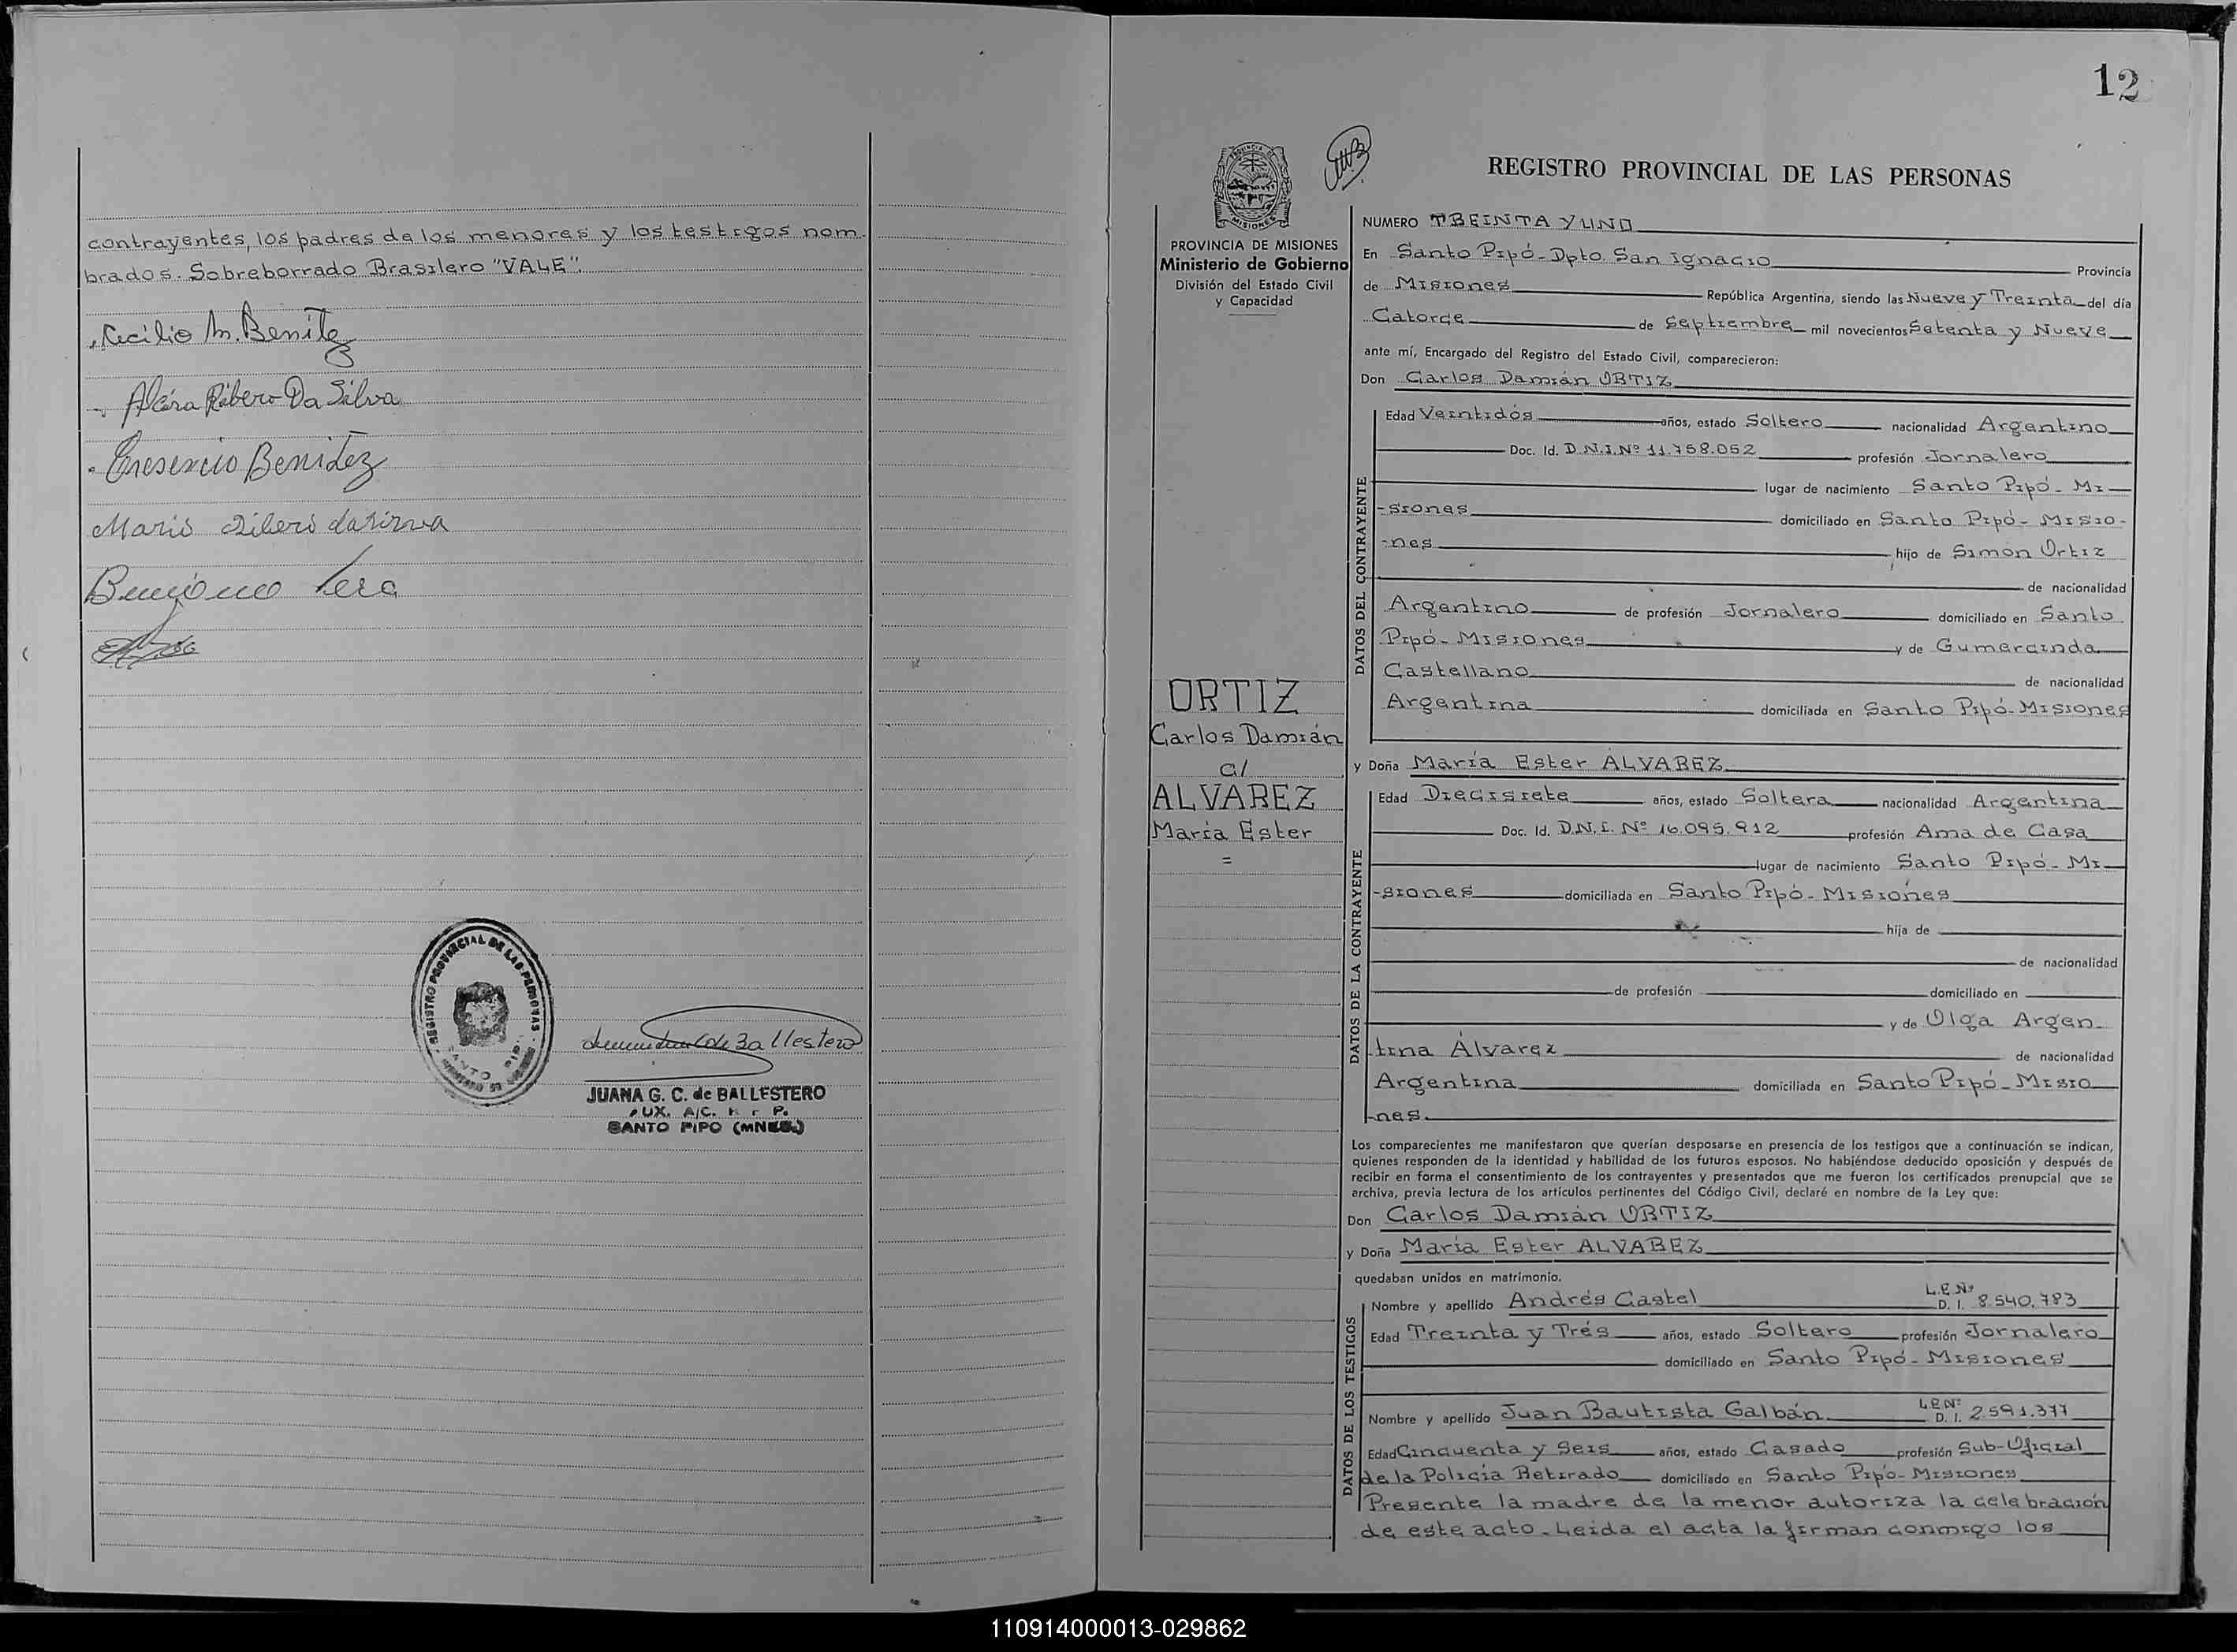 contrayentes, los padres de los menores y los testigos nom.
brados. Sobreborrado Brasilero "VALE".
Cecilio M. Benitez
Ribero Da Silva
Benitez
REGISTRO PROVINCIAL DE LAS PERSONAS
SANTO PIPO
JUANA G. C. de BALLESTERO
AUX. A/C. R P.
SANTO PIPO (MNES.)
12
PROVINCIA DE
MISIONES
REGISTRO PROVINCIAL DE LAS PERSONAS
PROVINCIA DE MISIONES
Ministerio de Gobierno
División del Estado Civil
y Capacidad
ORTIZ
Carlos Damián
c/
ALVAREZ
María Ester
=
NUMERO TREINTA Y UNO
En Santo Pipó - Dpto. San Ignacio Provincia
de Misiones República Argentina, siendo las Nueve y Treinta del día
Catorce de Septiembre mil novecientos Setenta y Nueve
ante mí, Encargado del Registro del Estado Civil, comparecieron:
Don Carlos Damián ORTIZ
DATOS DEL CONTRAYENTE
Edad Veintidós años, estado Soltero nacionalidad Argentino
Doc. Id. D.N.I. Nº 11.758.052 profesión Jornalero
lugar de nacimiento Santo Pipó - Mi-
-siones domiciliado en Santo Pipó - Misio-
-nes hijo de Simón Ortiz
de nacionalidad
Argentino de profesión Jornalero domiciliado en Santo
Pipó - Misiones y de Gumercinda
Castellano de nacionalidad
Argentina domiciliada en Santo Pipó - Misiones
y Doña María Ester ALVAREZ
DATOS DE LA CONTRAYENTE
Edad Diecisiete años, estado Soltera nacionalidad Argentina
Doc. Id. D.N.I. Nº 16.095.912 profesión Ama de Casa
lugar de nacimiento Santo Pipó - Mi-
-siones domiciliada en Santo Pipó - Misiones
hija de
de nacionalidad
de profesión domiciliado en
y de Olga Argen-
tina Álvarez de nacionalidad
Argentina domiciliada en Santo Pipó - Misio-
-nes.
Los comparecientes me manifestaron que querían desposarse en presencia de los testigos que a continuación se indican,
quienes responden de la identidad y habilidad de los futuros esposos. No habiéndose deducido oposición y después de
recibir en forma el consentimiento de los contrayentes y presentados que me fueron los certificados prenupcial que se
archiva, previa lectura de los artículos pertinentes del Código Civil, declaré en nombre de la Ley que:
Don Carlos Damián ORTIZ
y Doña María Ester ALVAREZ
quedaban unidos en matrimonio.
DATOS DE LOS TESTIGOS
Nombre y apellido Andrés Castel L.E. Nº D. I. 8.540.783
Edad Treinta y Trés años, estado Soltero profesión Jornalero
domiciliado en Santo Pipó - Misiones
Nombre y apellido Juan Bautista Galbán L.E. Nº D. I. 2.591.377
Edad Cincuenta y Seis años, estado Casado profesión Sub-Oficial
de la Policía Retirado domiciliado en Santo Pipó - Misiones
Presente la madre de la menor autoriza la celebración
de este acto. Leída el acta la firman conmigo los
110914000013-029862